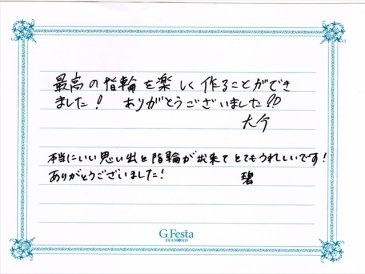 最高の指輪を楽しく作ることができ
ました! ありがとうございました!!
本当にいい思い出と指輪が出来てとてもうれしいです!
ありがとうございました! 碧
G.Festa
DIAMOND